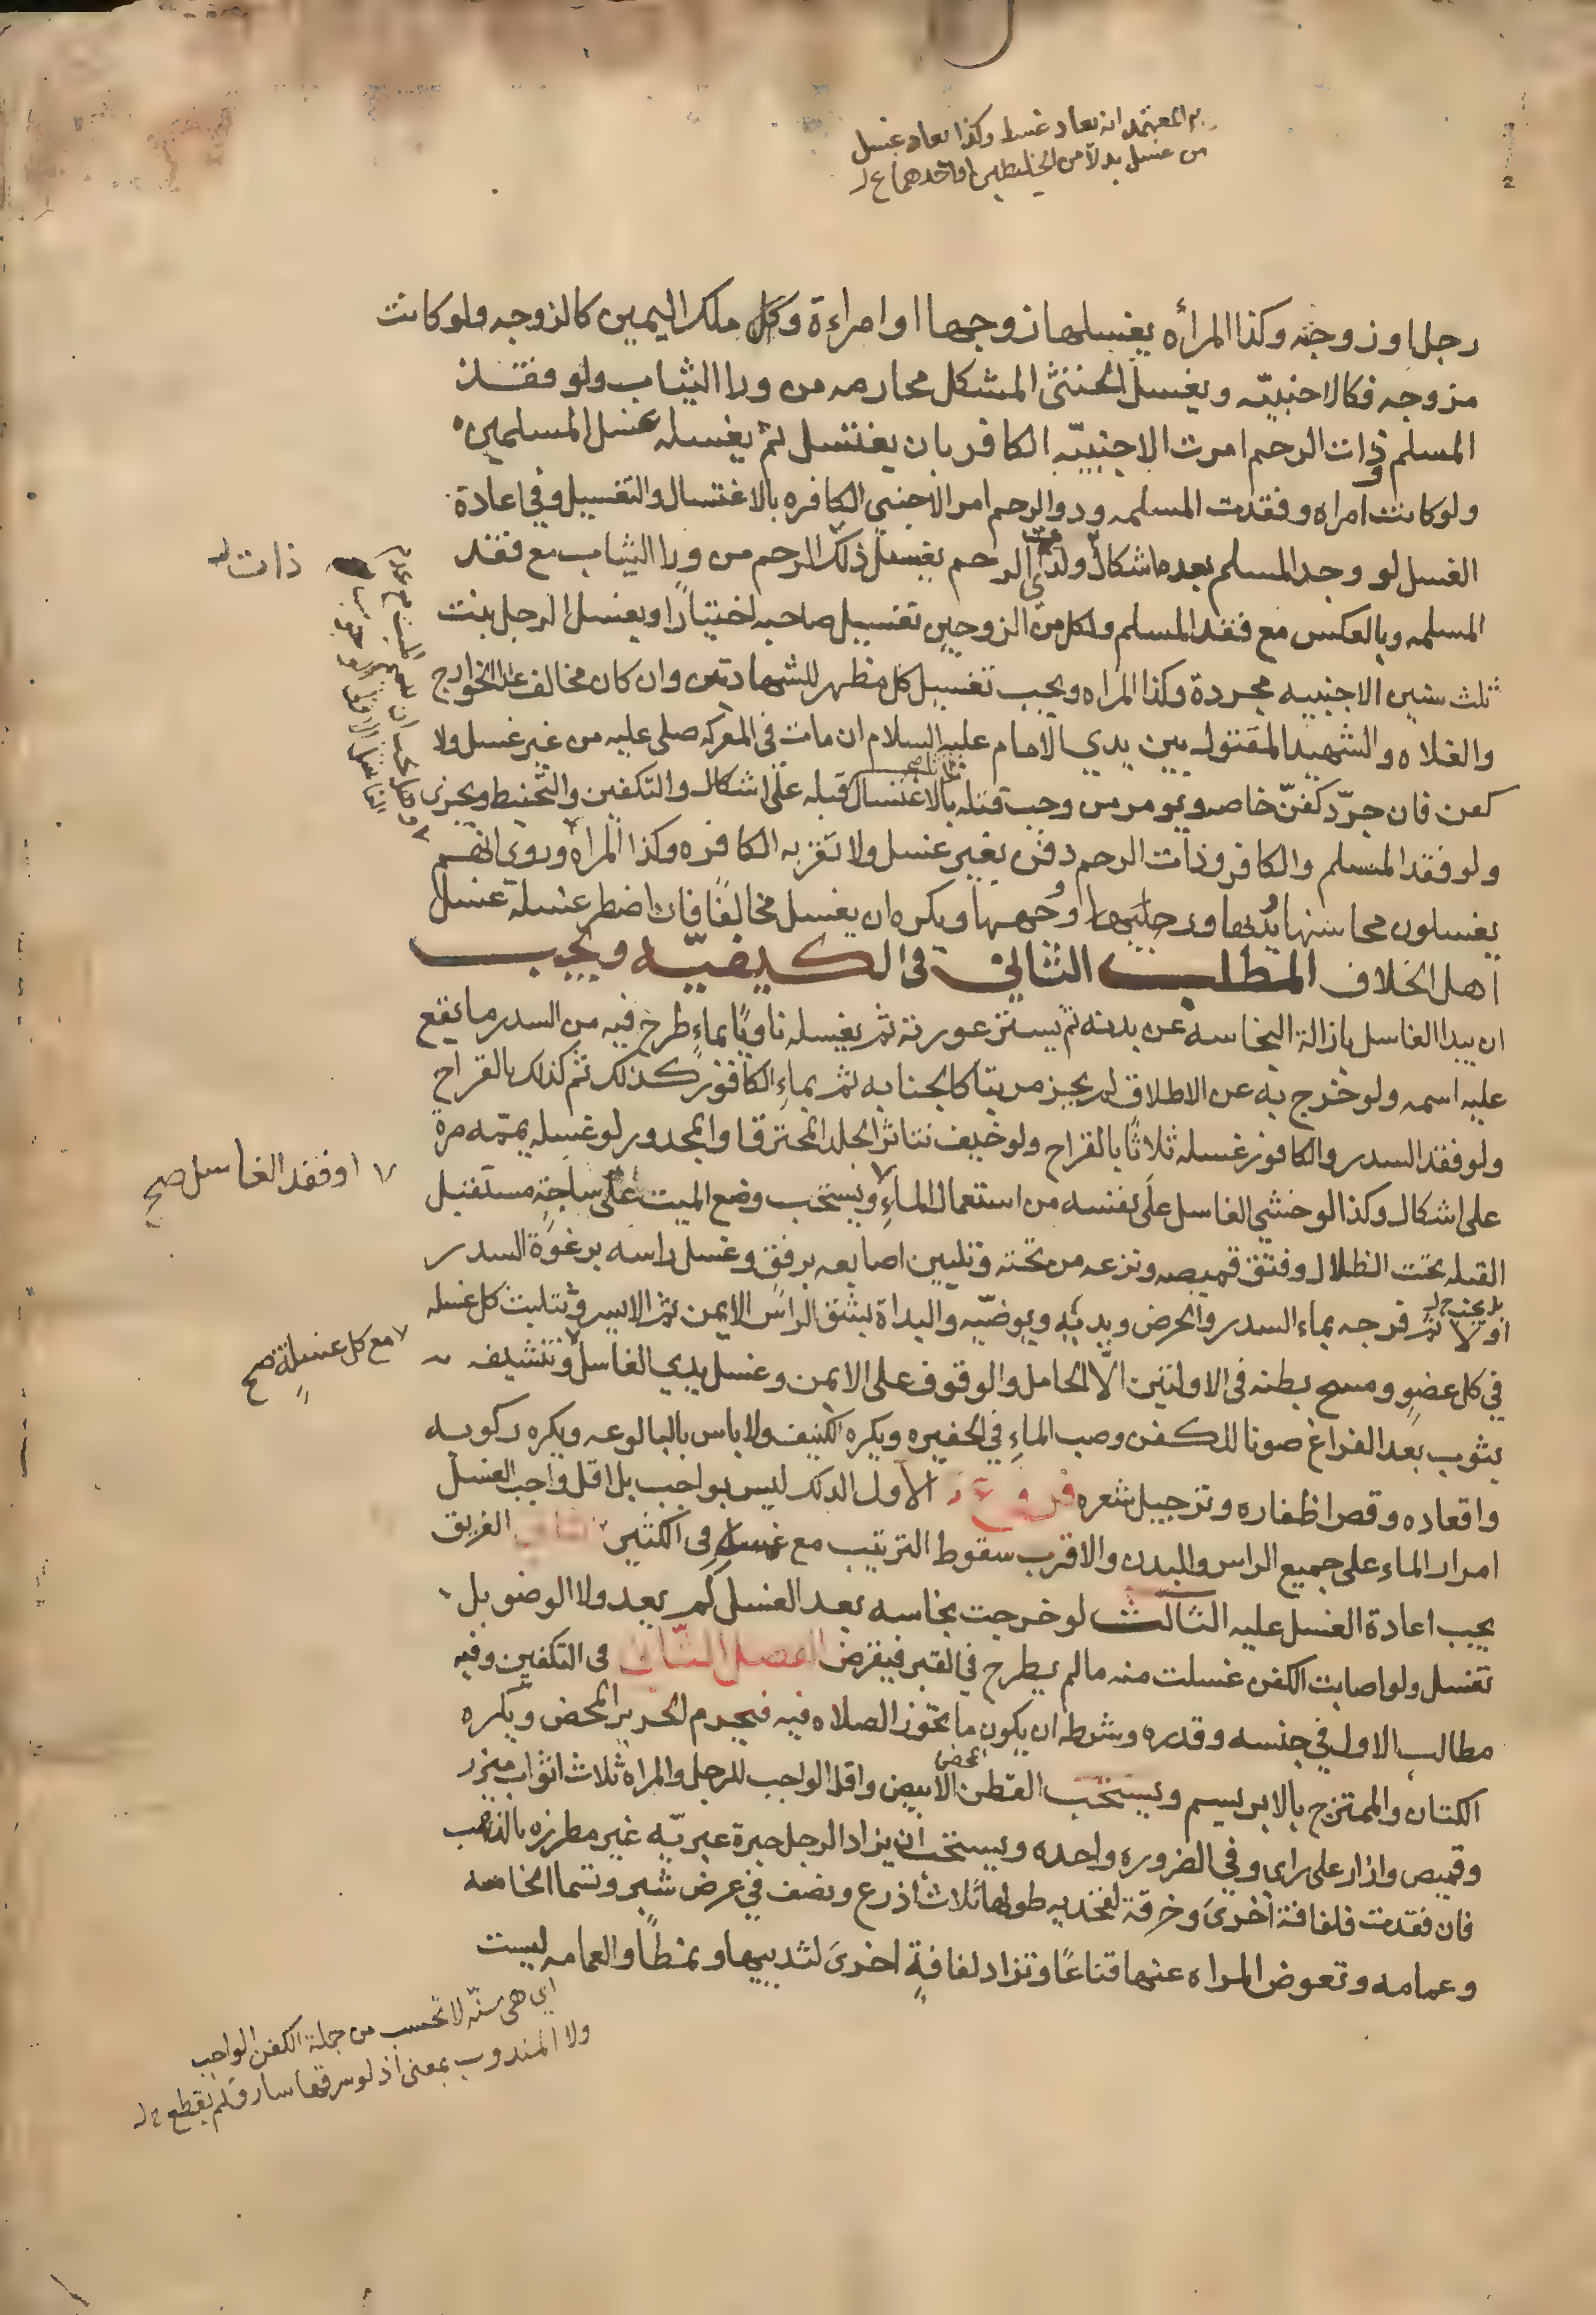 المعتمد انه يعاد غسله وكذا يعاد غسل
من غسل بدلا من الخليطين او احدهما ع ل
رجل او زوجته وكذا المرأه يغسلها زوجها او امراءة وكل ملك اليمين كالزوجه ولو كانت
مزوجه فكالاجنبيّه ويغسل الخنثى المشكل محارمه من ورا الثياب ولو فقد
المسلم وذات الرحم امرت الاجنبيّه الكافر بان يغتسل ثم يغسله غسل المسلمين
ولو كانت امراه وفقدت المسلمه وذو الرحم امر الاجنبي الكافره بالاغتسال والتغسيل وفي اعادة
الغسل لو وجد المسلم بعده اشكال ولذي الرحم يغسل ذلك الرحم من ورا الثياب مع فقد
ذات
المسلمه وبالعكس مع فقد المسلم ولكل من الزوجين تغسيل صاحبه اختيارًا ويغسل الرجل بنت
ثلث سنين الاجنبيه مجردة وكذا المراه ويجب تغسيل كل مظهر للشهادتين وان كان مخالف عدا الخوارج
والغلاه والشهيد المقتول بين يدي الامام عليه السلام ان مات في المعركه صلى عليه من غير غسل ولا
كفن فان جرّد كفنّ خاصه ويومر من وجب قتله بالاغتسال قبله على اشكال والتكفين والتحنيط ويجزى
ولو فقد المسلم والكافر وذات الرحم دفن بغير غسل ولا تقربه الكافره وكذا المراه وروى انهم
يغسلون محاسنها يديها ورجليها ووجهها ويكره ان يغسل مخالفًا فان اضطر غسله غسل
اهل الخلاف المطلب الثاني في الكيفيّه ويجب
ان يبدا الغاسل بازالة النجاسه عن بدنه ثم يستر عورته ثم يغسله ناويًا بماءٍ طرح فيه من السدر ما يقع
عليه اسمه ولو خرج به عن الاطلاق لم يجز مرتبا كالجنابه ثم بماءِ الكافور كذلك ثم كذلك بالقراح
ولو فقد السدر والكافور غسله ثلاثًا بالقراح ولو خيف تناثر الجلد المحترق او المجدور لو غسله يممّه مرة
او فقد الغاسل صح
على اشكال وكذا لو خشي الغاسل على نفسه من استعمال الماءِ ويستحب وضع الميت على ساجةٍ مستقبل
القبله تحت الظلال وفتق قميصه ونزعه من تحته وتليين اصابعه برفق وغسل راسه برغوة السدر
اولا ثم فرجه بماء السدر والحرض ويديه ويوضيّه والبداة بشق الراس الايمن ثم الايسر وتثليث كل غسله
في كل عضوٍ ومسح بطنه في الاولتين الّا الحامل والوقوف على الايمن وغسل يدي الغاسل وتنشيفه
مع كل غسلةٍ صح
بثوب بعد الفراغ صونا للكفن وصب الماءِ في الحفيره ويكره الكنيف ولا باس بالبالوعه ويكره ركوبه
واقعاده وقص اظفاره وترجيل شعره فروع الاول الدلك ليس بواجب بل اقل واجب الغسل
امرار الماء على جميع الراس والبدن والاقرب سقوط الترتيب مع غسله في الكثير الثاني الغريق
يجب اعادة الغسل عليه الثالث لو خرجت نجاسه بعد الغسل لم يعد ولا الوضو بل
تغسل ولو اصابت الكفن غسلت منه ما لم يطرح في القبر فيقرض الفصل الثاني في التكفين وفيه
مطالب الاول في جنسه وقدره وشرطه ان يكون ما تجوز الصلاه فيه فيحرم الحرير المحض ويكره
الكتان والممتزج بالابريسم ويستحب القطن المحض الابيض واقل الواجب للرجل والمراه ثلاث اثواب ميزر
وقميص وازار على راى وفي الضروره واحده ويستحب ان يزاد الرجل حبرة عبريّه غير مطرزه بالذهب
فان فقدت فلفافة اخرى وخرقة لفخديه طولها ثلاث اذرع ونصف في عرض شبر وتسما الخامسه
وعمامه وتعوض المراه عنها قناعًا وتزاد لفافةٍ اخرى لثدييها ونمطًا والعمامه ليست
اى هى سنّه لا تحسب من جملة الكفن الواجب
ولا المندوب بمعنى اذ لو سرقها سارق لم يقطع